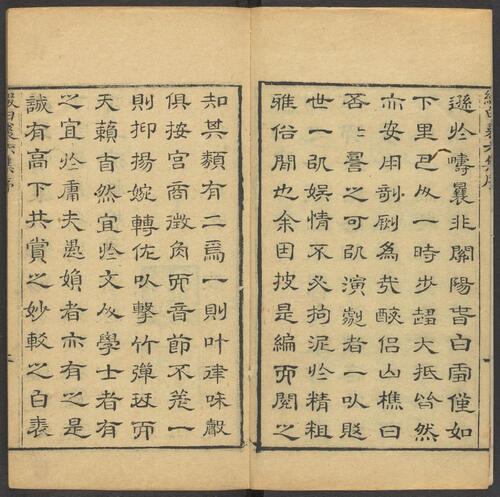 綴白裘六集序
遜於疇曩非關陽春白雪僅如
下里巴人一時步趨大抵皆然
亦安用剞劂為哉醵侶山樵曰
否〻詞之可以演劇者一以勗
世一以娛情不必拘泥於精粗
雅俗間也余因披是編而閱之
知其類有二焉一則叶律咊聲
俱按宮商徵角而音節不差一
則抑揚婉轉佐以擊竹彈絃而
天籟自然宜於文人學士者有
之宜於庸夫愚婦者亦有之是
誠有高下共賞之妙較之白裘
綴白裘六集序